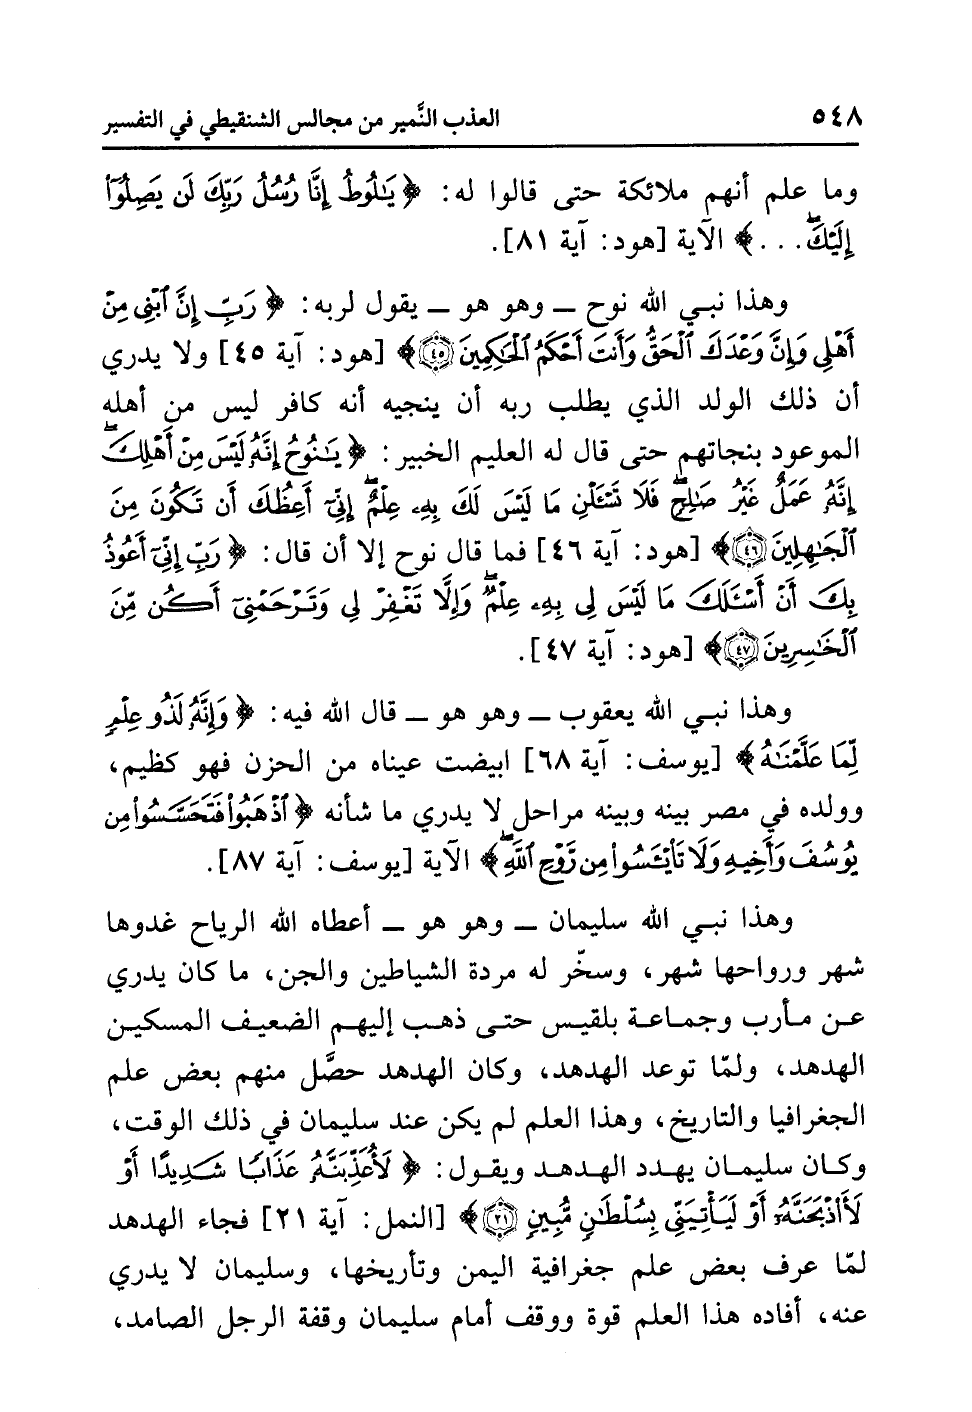 ٥٤٨ العذب النَّمير من مجالس الشنقيطي في التفسير
وما علم أنهم ملائكة حتى قالوا له: ﴿ يَٰلُوطُ إِنَّا رُسُلُ رَبِّكَ لَن يَصِلُوٓا۟
إِلَيْكَۖ . . . ﴾ الآية [هود: آية ٨١].
وهذا نبي الله نوح ــ وهو هو ــ يقول لربه: ﴿ رَبِّ إِنَّ ٱبْنِى مِنْ
أَهْلِى وَإِنَّ وَعْدَكَ ٱلْحَقُّ وَأَنتَ أَحْكَمُ ٱلْحَٰكِمِينَ ٤٥﴾ [هود: آية ٤٥] ولا يدري
أن ذلك الولد الذي يطلب ربه أن ينجيه أنه كافر ليس من أهله
الموعود بنجاتهم حتى قال له العليم الخبير: ﴿ يَٰنُوحُ إِنَّهُۥ لَيْسَ مِنْ أَهْلِكَۖ
إِنَّهُۥ عَمَلٌ غَيْرُ صَٰلِحٍۖ فَلَا تَسْـَٔلْنِ مَا لَيْسَ لَكَ بِهِۦ عِلْمٌۖ إِنِّىٓ أَعِظُكَ أَن تَكُونَ مِنَ
ٱلْجَٰهِلِينَ ٤٦﴾ [هود: آية ٤٦] فما قال نوح إلا أن قال: ﴿ رَبِّ إِنِّىٓ أَعُوذُ
بِكَ أَنْ أَسْـَٔلَكَ مَا لَيْسَ لِى بِهِۦ عِلْمٌۖ وَإِلَّا تَغْفِرْ لِى وَتَرْحَمْنِىٓ أَكُن مِّنَ
ٱلْخَٰسِرِينَ ٤٧﴾ [هود: آية ٤٧].
وهذا نبي الله يعقوب ــ وهو هو ــ قال الله فيه: ﴿ وَإِنَّهُۥ لَذُو عِلْمٍ
لِّمَا عَلَّمْنَٰهُ ﴾ [يوسف: آية ٦٨] ابيضت عيناه من الحزن فهو كظيم،
وولده في مصر بينه وبينه مراحل لا يدري ما شأنه ﴿ ٱذْهَبُوا۟ فَتَحَسَّسُوا۟ مِن
يُوسُفَ وَأَخِيهِ وَلَا تَا۟يْـَٔسُوا۟ مِن رَّوْحِ ٱللَّهِۖ ﴾ الآية [يوسف: آية ٨٧].
وهذا نبي الله سليمان ــ وهو هو ــ أعطاه الله الرياح غدوها
شهر ورواحها شهر، وسخّر له مردة الشياطين والجن، ما كان يدري
عن مأرب وجماعة بلقيس حتى ذهب إليهم الضعيف المسكين
الهدهد، ولمّا توعد الهدهد، وكان الهدهد حصَّل منهم بعض علم
الجغرافيا والتاريخ، وهذا العلم لم يكن عند سليمان في ذلك الوقت،
وكان سليمان يهدد الهدهد ويقول: ﴿ لَأُعَذِّبَنَّهُۥ عَذَابًا شَدِيدًا أَوْ
لَأَا۟ذْبَحَنَّهُۥٓ أَوْ لَيَأْتِيَنِّى بِسُلْطَٰنٍ مُّبِينٍ ٢١﴾ [النمل: آية ٢١] فجاء الهدهد
لمّا عرف بعض علم جغرافية اليمن وتأريخها، وسليمان لا يدري
عنه، أفاده هذا العلم قوة ووقف أمام سليمان وقفة الرجل الصامد،